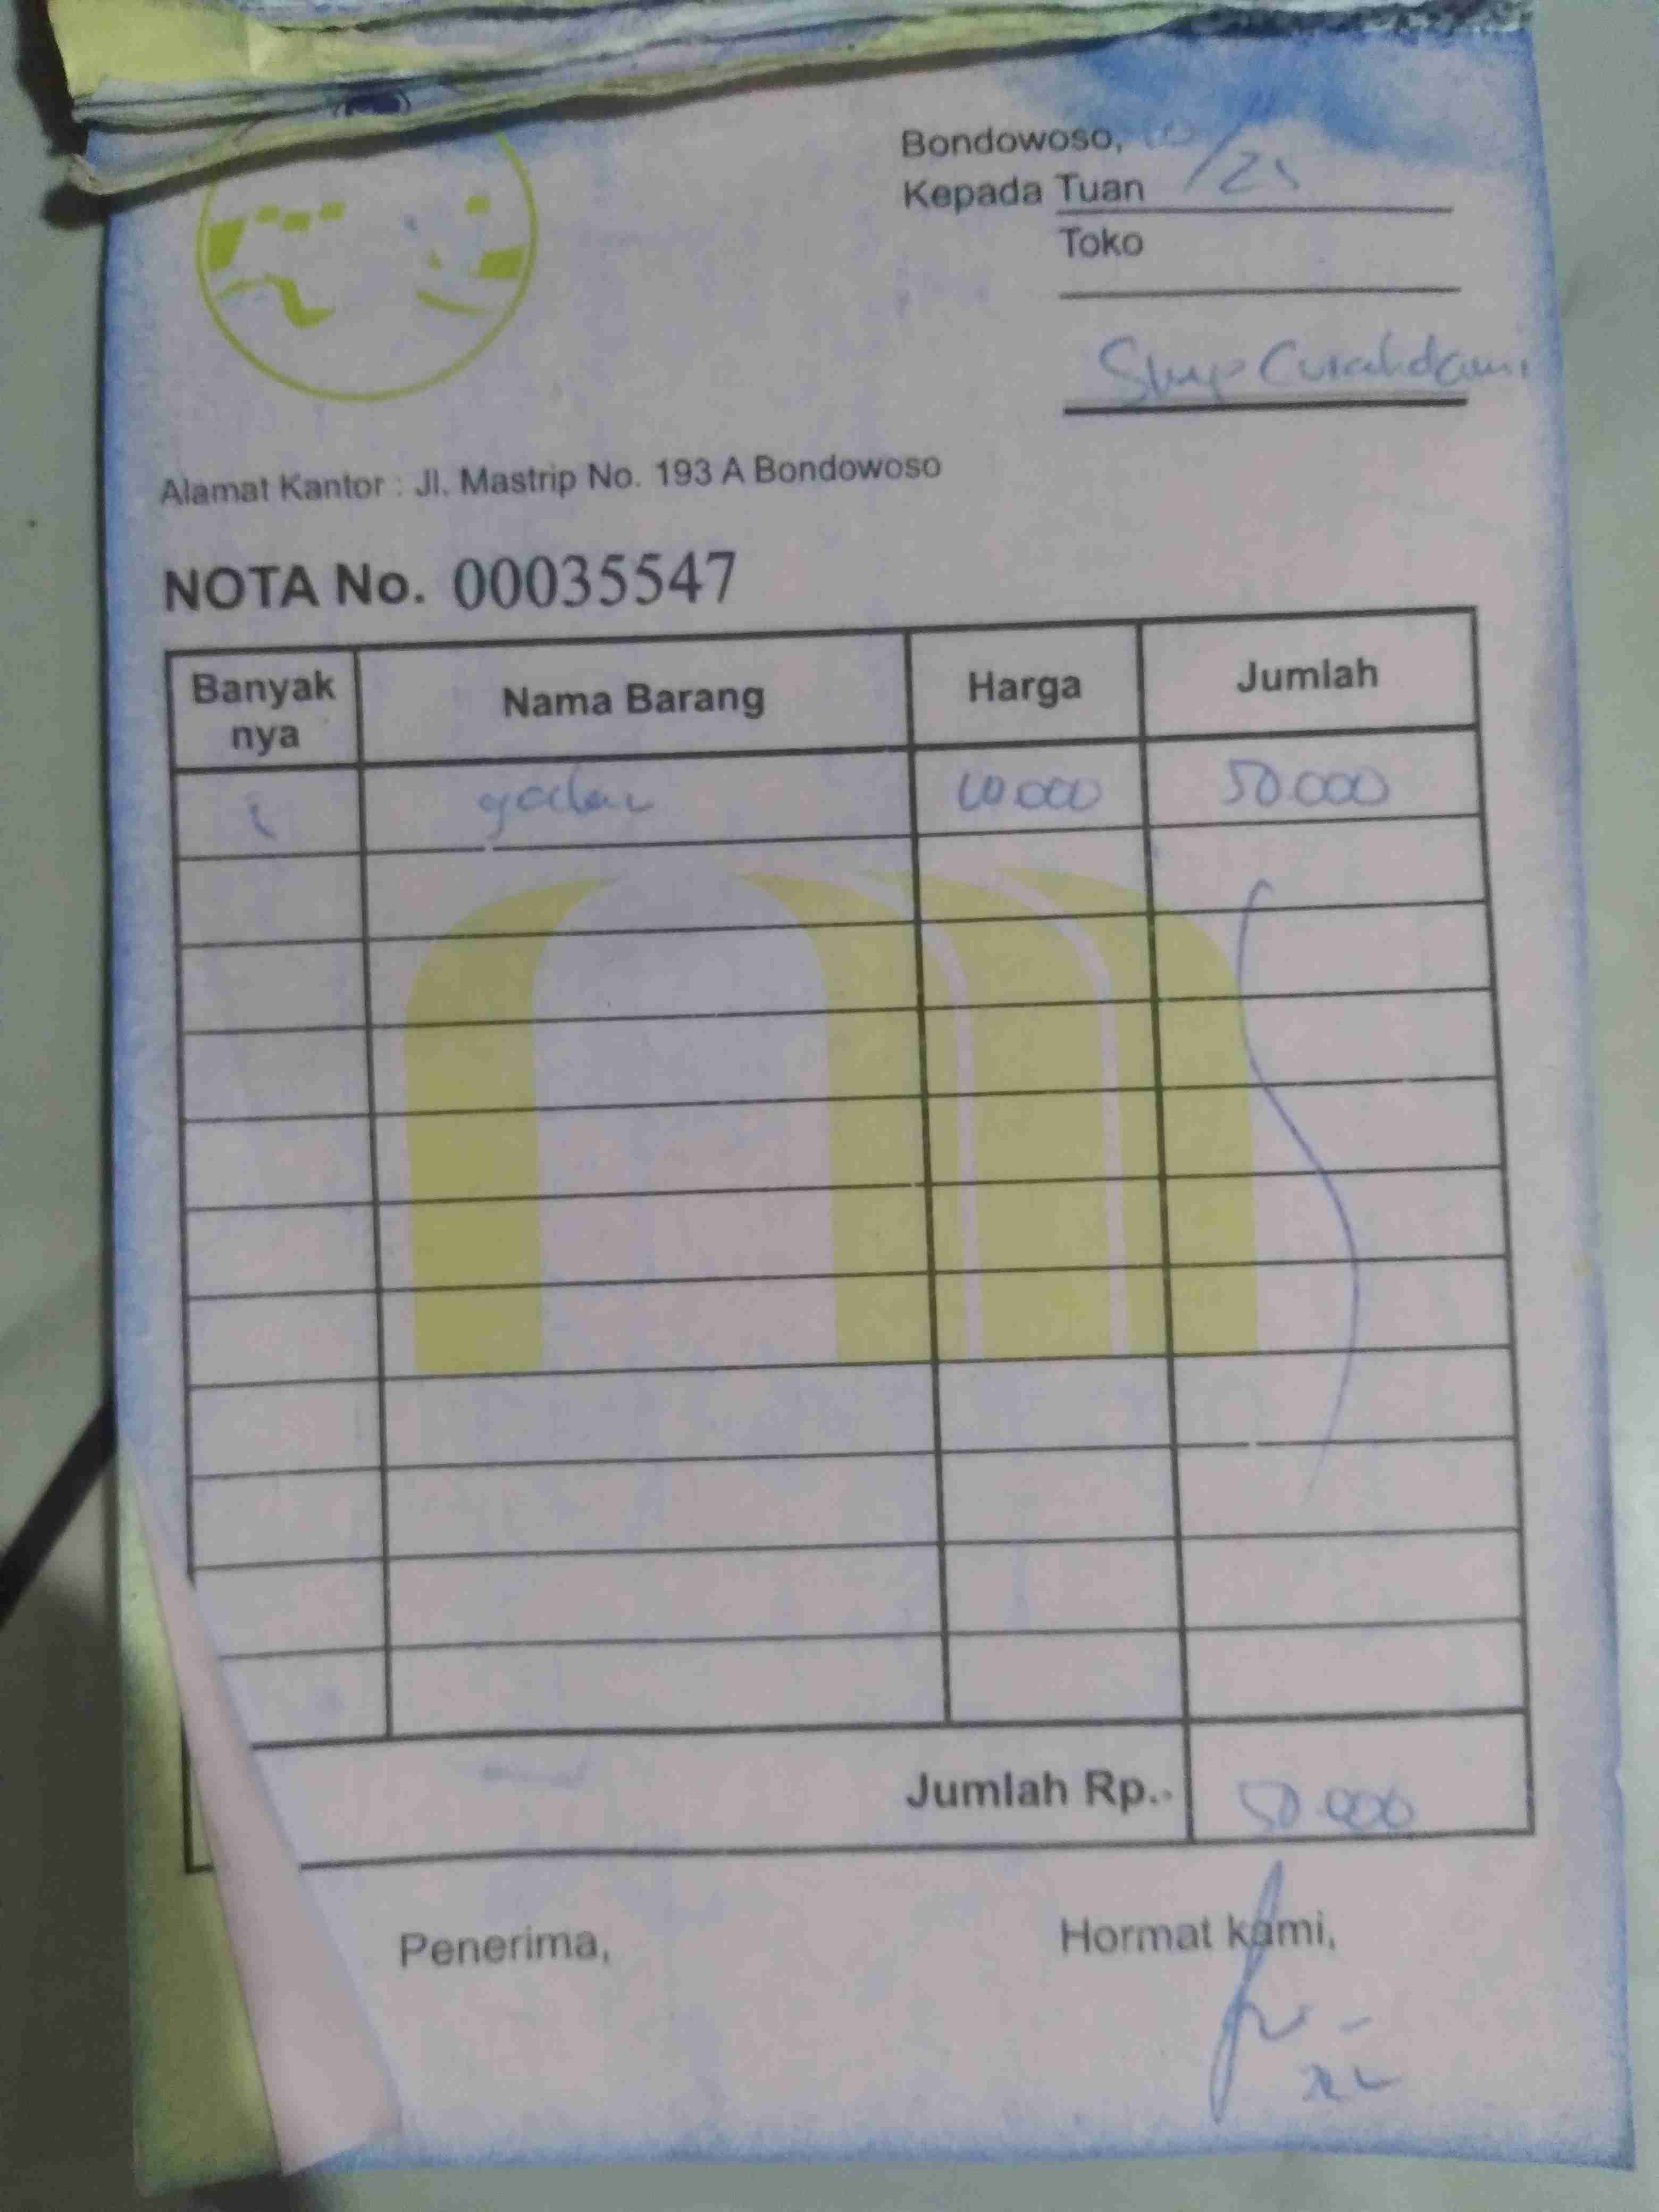 Bondowoso,
/25
Kepada Tuan
Toko
Curahdami
Alamat Kantor : Jl. Mastrip No. 193 A Bondowoso
NOTA No. 00035547
Banyak nya Nama Barang Harga Jumlah
galon 10.000 50.000
Jumlah Rp.- 50.000
Penerima, Hormat kami,